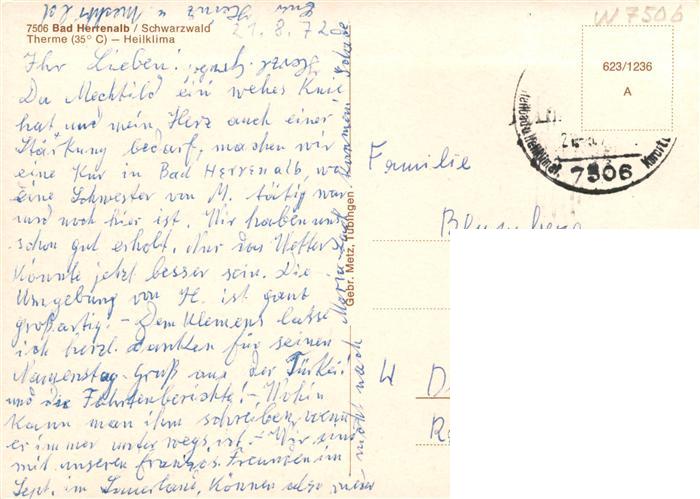 W 7506
7506 Bad Herrenalb / Schwarzwald
Therme (35° C) — Heilklima
21.8.72
Ihr Lieben!
Da Mechtild ein wehes Knie
hat und mein Herz auch einer
Stärkung bedarf, machen wir
eine Kur in Bad Herrenalb, wo
eine Schwester von M. tätig war
und noch hier ist. Wir haben uns
schon gut erholt, nur das Wetter
könnte jetzt besser sein. Die
Umgebung von H. ist ganz
großartig! - Dem Klemens lasse
ich herzl. danken für seinen
Namenstag-Gruß aus der Türkei
und die Fahrtenberichte! - Wohin
kann man ihm schreiben, wenn
er immer unterwegs ist. - Wir sind
mit unseren französ. Freunden im
Sept. im Sauerland, können also
nicht nach Maria kommen! Schade
Gebr. Metz, Tübingen
623/1236
A
7506
Familie
W